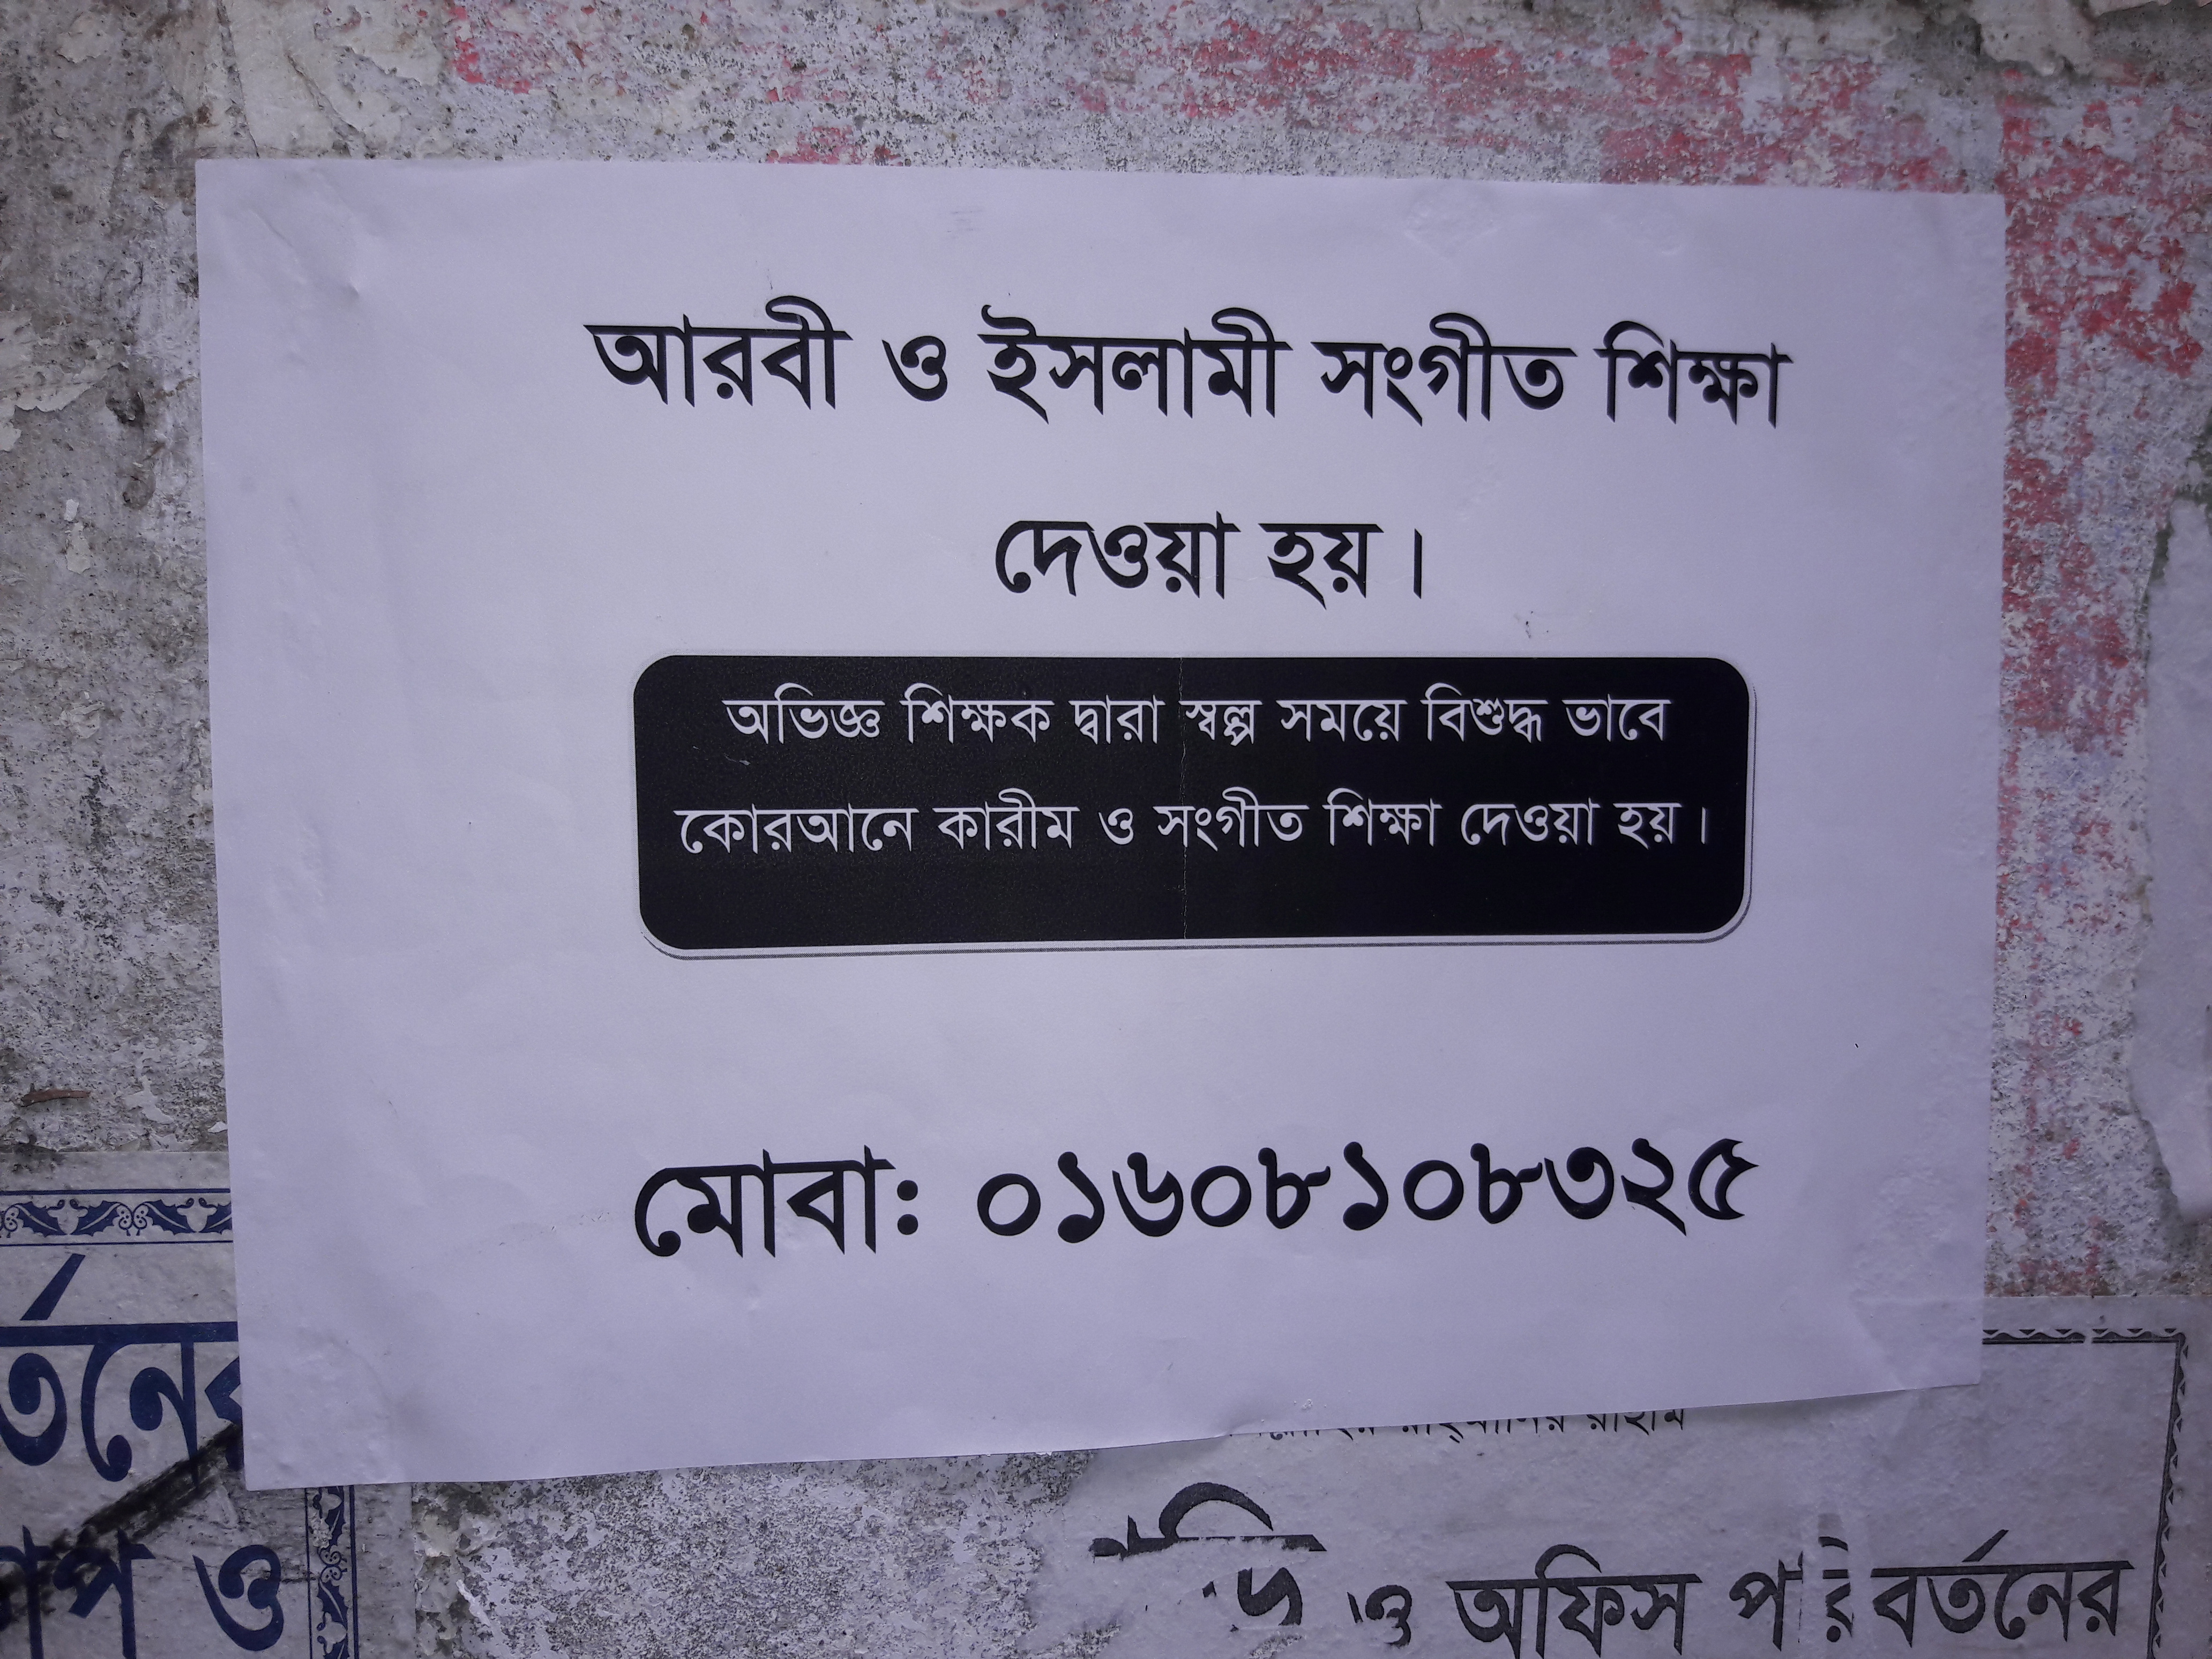 আরবী ও ইসলামী সংগীত শিক্ষা
দেওয়া হয়।
অভিজ্ঞ শিক্ষক দ্বারা স্বল্প সময়ে বিশুদ্ধ ভাবে
কোরআনে কারীম ও সংগীত শিক্ষা দেওয়া হয়।
মোবা: ০১৬০৮১০৮৩২৫
ও
ও অফিস পরিবর্তনের